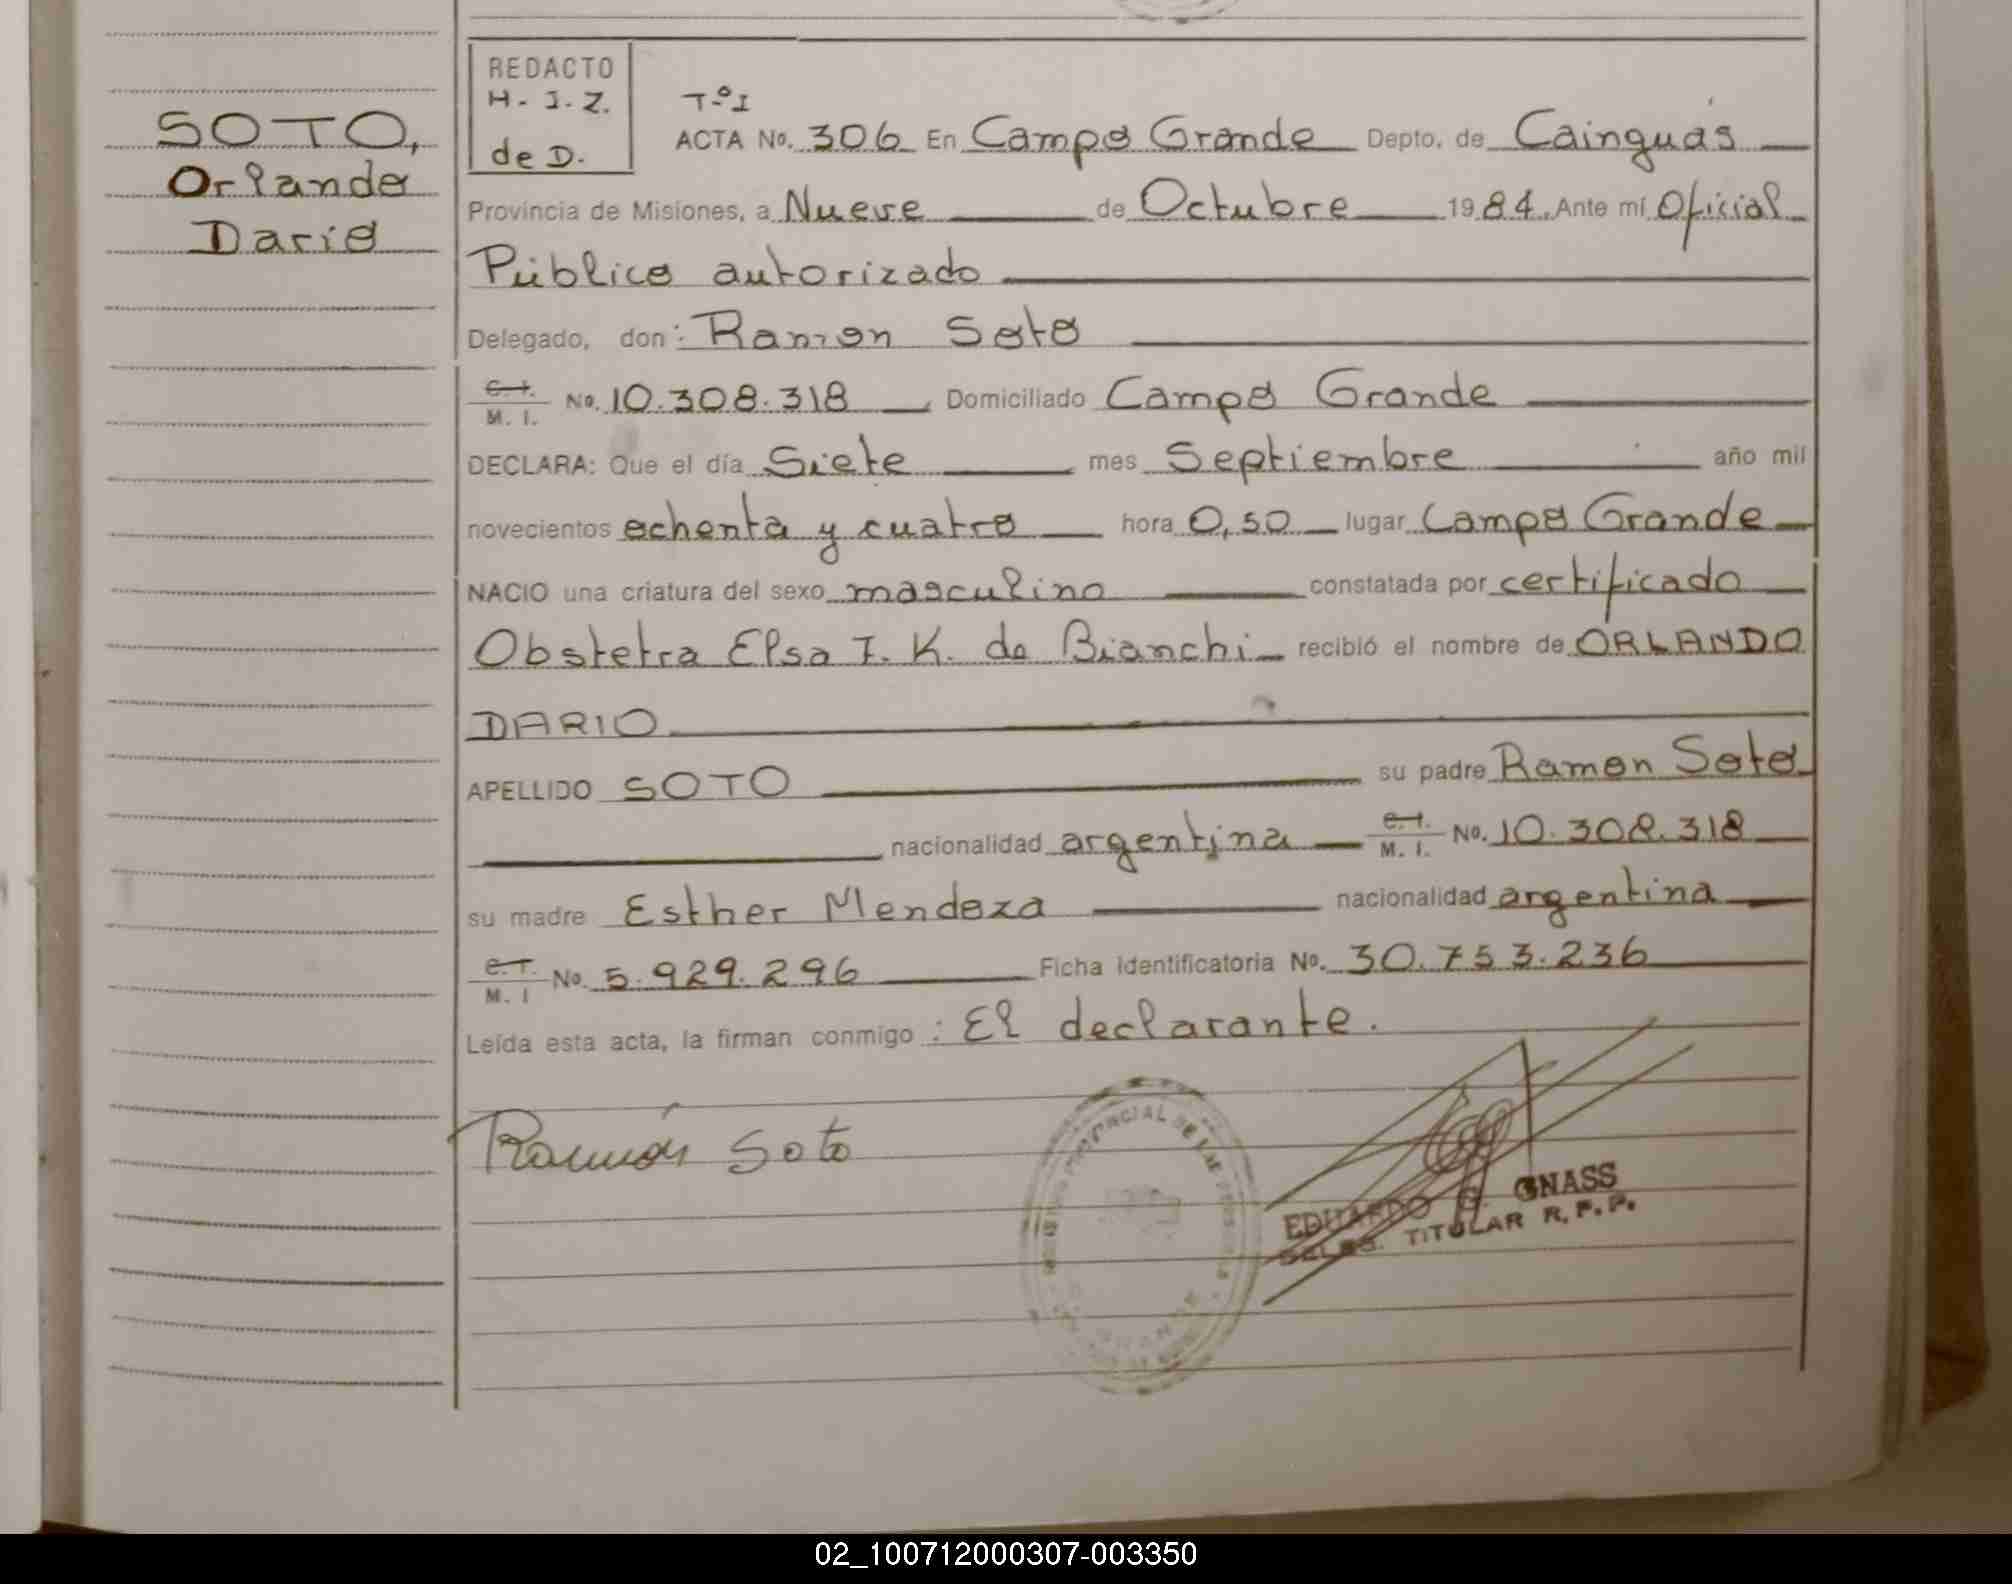 SOTO,
Orlando
Dario
REDACTO
H. I. Z.
de D.
Tº I
ACTA No. 306 En Campo Grande Depto. de Cainguás
Provincia de Misiones, a Nueve de Octubre 1984. Ante mí Oficial
Público autorizado
Delegado, don: Ramon Soto
C. I. M. I. No. 10.308.318 Domiciliado Campo Grande
DECLARA: Que el día Siete mes Septiembre año mil
novecientos ochenta y cuatro hora 0,50 lugar Campo Grande
NACIO una criatura del sexo masculino constatada por certificado
Obstetra Elsa I. K. de Bianchi recibió el nombre de ORLANDO
DARIO
APELLIDO SOTO su padre Ramon Soto
nacionalidad argentina C. I. M. I. No. 10.308.318
su madre Esther Mendoza nacionalidad argentina
C. I. M. I No. 5.929.296 Ficha Identificatoria No. 30.753.236
Leída esta acta, la firman conmigo : El declarante.
Ramón Soto
PROVINCIAL DE LAS
EDUARDO G. GNASS
DELEG. TITULAR R. P. P.
02_100712000307-003350